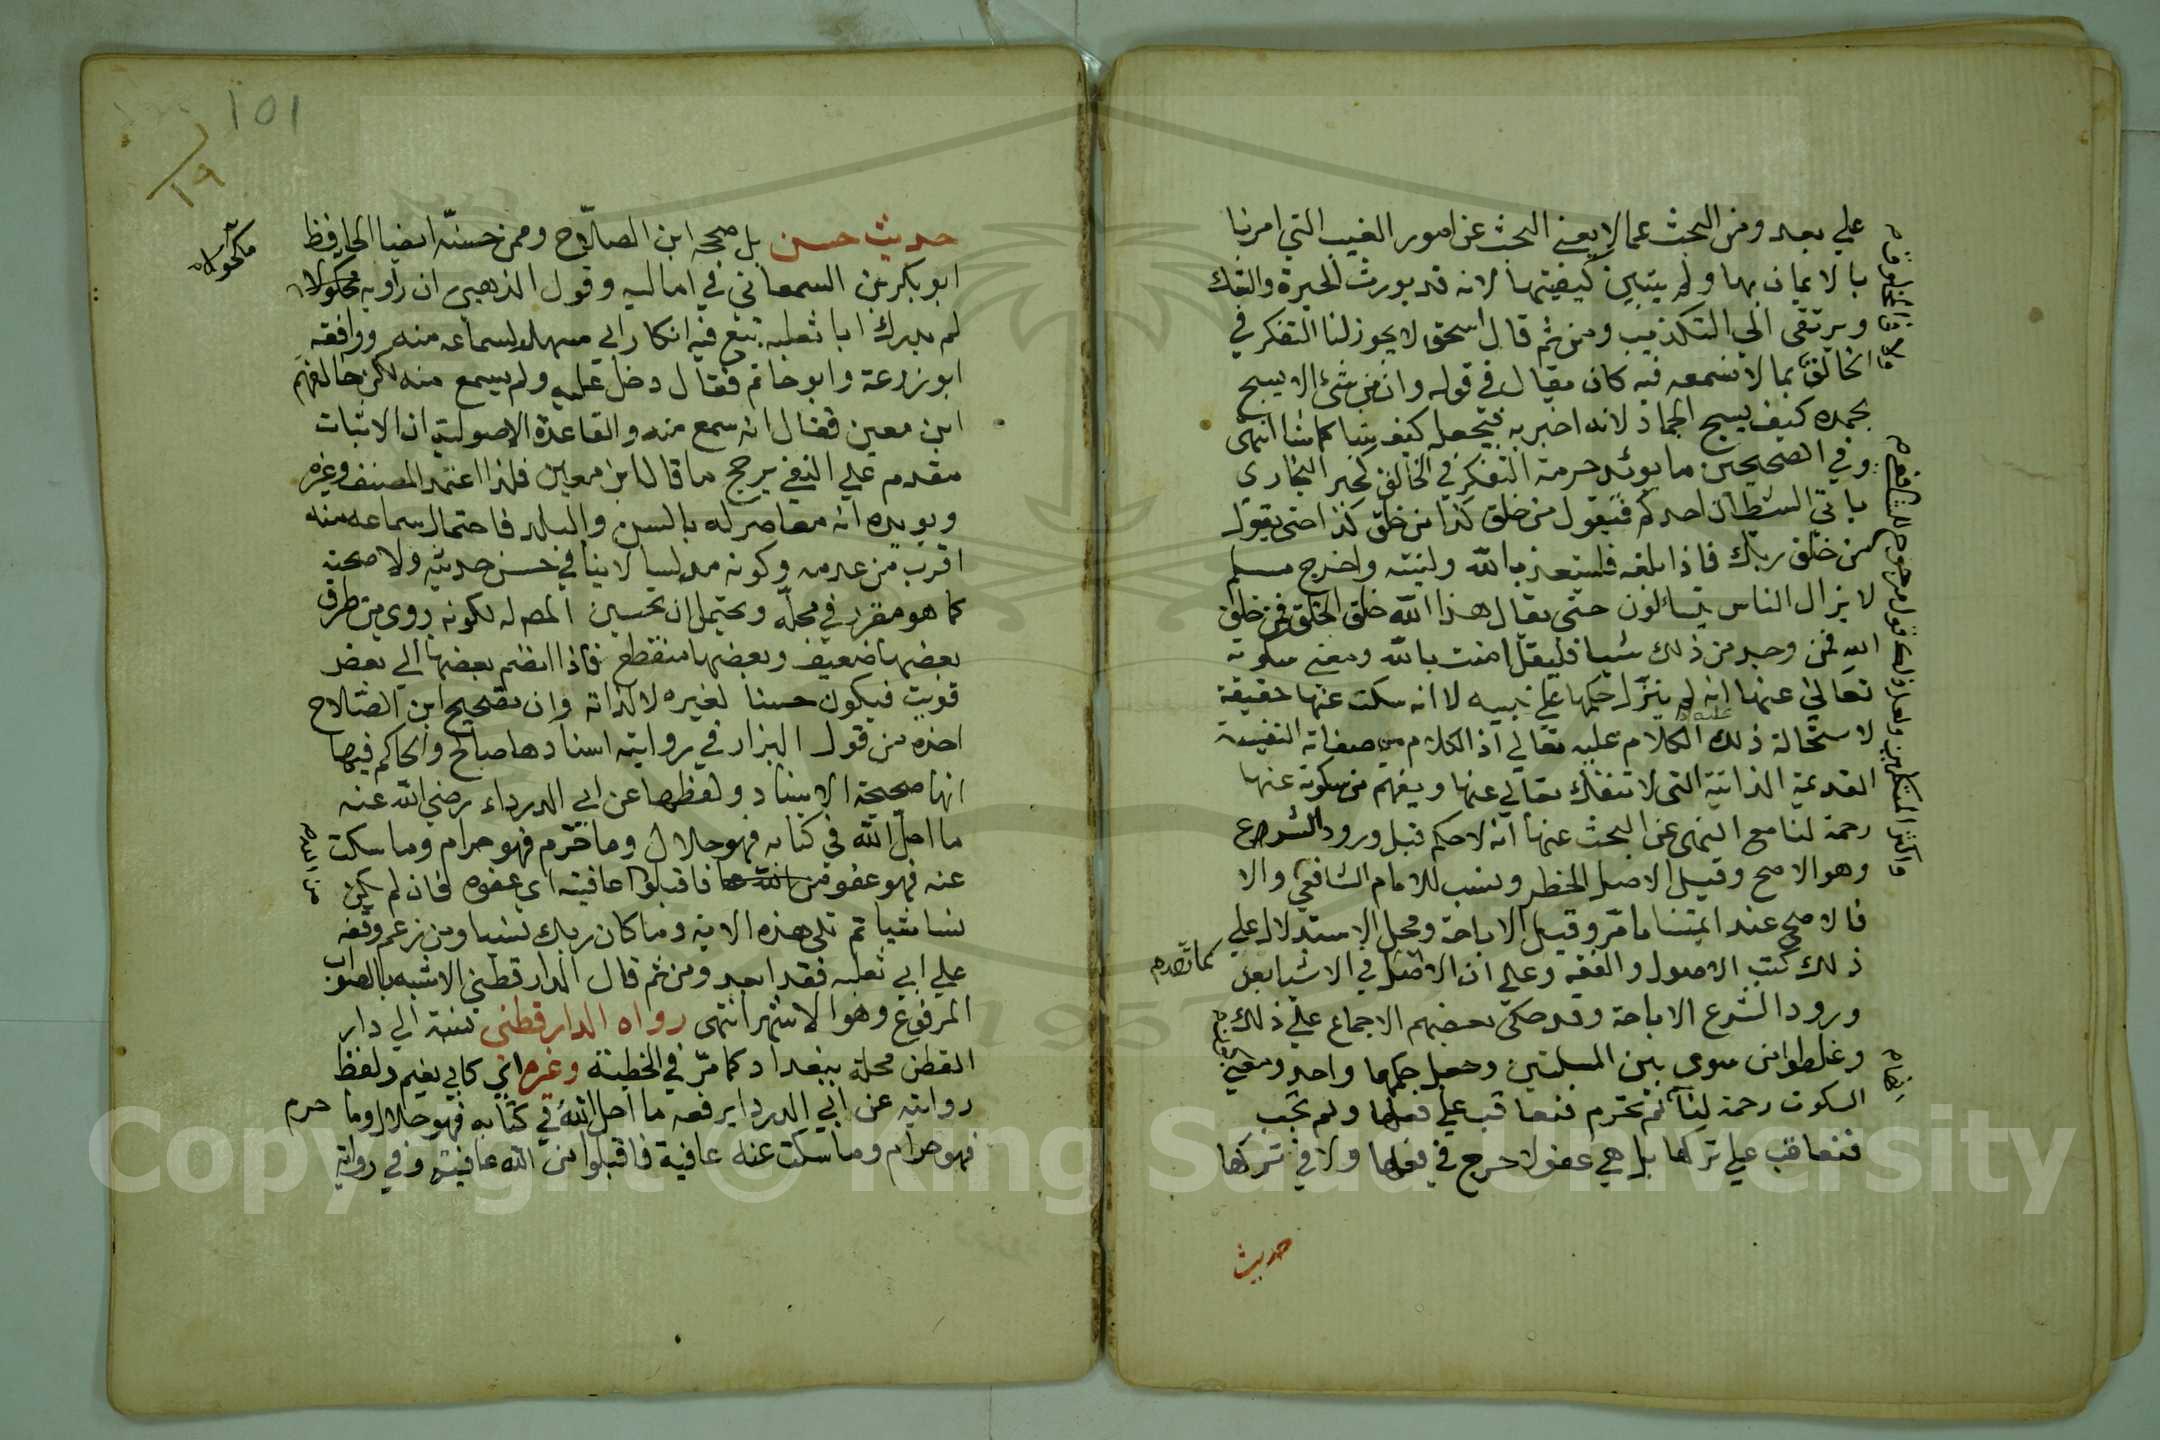 علي بعد ومن البحث عما لا يعني البحث عن امور الغيب التي امرنا
بالايمان بها ولم يتبين كيفيتها لانه قد يورث الحيرة والشك
ويرتقى الي التكذيب ومن ثم قال اسحق لا يجوز لنا التفكر في
الخالق بما لا نسمعه فيه كان يقال في قوله وان من شئ الا يسبح
بحمده كيف يسبح الجماد لانه اخبر به فيجعله كيف شا كما شا انتهى
وفي الصحيحين ما يوئد حرمة التفكر في الخالق كخبر البخاري
ياتي الشيطان احدكم فيقول من خلق كذا من خلق كذا حتى يقول
من خلق ربك فاذا بلغه فليستعذ بالله ولينته واخرج مسلم
لا يزال الناس يتسائلون حتى يقال هذا الله خلق الخلق فمن خلق
الله فمن وجد من ذلك شيا فليقل امنت بالله ومعنى سكوته
تعالى عنها انه لم ينزل حكمها علي نبيه لا انه سكت عنها حقيقة
لاستحالة ذلك عليه تعالي اذ الكلام من صفاته النفيسة
القديمة الذاتية التي لا تنفك تعالي عنها ويفهم من سكوته عنها
رحمة لنا مع النهي عن البحث عنها انه لا حكم قبل ورود الشرع
وهو الاصح وقيل الاصل الحظر ونسب للامام الشافعي والا
فالاصح عند ايمتنا ما مر وقيل الاباحة ومحل الاستدلال علي
ذلك كتب الاصول والفقه وعلي ان الاصل في الاشيا بعد
كما تقدم
ورود الشرع الاباحة وقد حكى بعضهم الاجماع علي ذلك
وغلطوا من سوى بين المسلتين وجعل حكمهما واحد ومعنى
السكوت رحمة لنا لم تحرم فنعاقب علي فعلها ولم تجب
فنعاقب علي تركها بل هي عفو لا حرج في فعلها ولا في تركها
حديث
١٥١
١٩
حديث حسن بل صححه ابن الصلاح وممن حسنه ايضا الحافظ
ابو بكر بن السمعاني في اماليه وقول الذهبي ان راويه مكحولا
لم يدرك ابا ثعلبة تبع فيه انكار ابي مسهر لسماعه منه ووافقه
ابو زرعة وابو حاتم فقال دخل عليه ولم يسمع منه لكن خالفهم
ابن معين فقال انه سمع منه والقاعدة الاصولية ان الاثبات
مقدم علي النفي يرجح ما قاله ابن معين فلهذا اعتمد المصنف وغيره
ويويده انه معاصر له بالسن والبلد فاحتمال سماعه منه
اقرب من عدمه وكونه مدلسا لا ينافي حسن حديثه ولا صحته
كما هو مقرر في محله ويحتمل ان تحسين المص له لكونه روي من طرق
بعضها ضعيف وبعضها منقطع فاذا انضم بعضها الي بعض
قويت فيكون حسنا لغيره لا لذاته وان تصحيح ابن الصلاح
اخذه من قول البزار في روايته اسنادها صالح والحاكم فيها
انها صحيحة الاسناد ولفظها عن ابي الدرداء رضي الله عنه
ما احل الله في كتابه فهو حلال وما حرم فهو حرام وما سكت
عنه فهو عفو فاقبلوا عافيته اي عفوه فان لم يكن
نسا شيا ثم تلى هذه الاية وما كان ربك نسيا ومن زعم وقفه
علي ابي ثعلبه فقد ابعد ومن ثم قال الدارقطني الاشبه بالصواب
المرفوع وهو الاشهر انتهى رواه الدارقطني نسبة الي دار
القطن محلة ببغداد كما مر في الخطبة وغيره اي كابي نعيم ولفظ
روايته عن ابي الدردا يرفعه ما احل الله في كتابه فهو حلال وما حرم
فهو حرام وما سكت عنه عافية فاقبلوا من الله عافيته وفي رواية
Copyright © King Saud University
1957